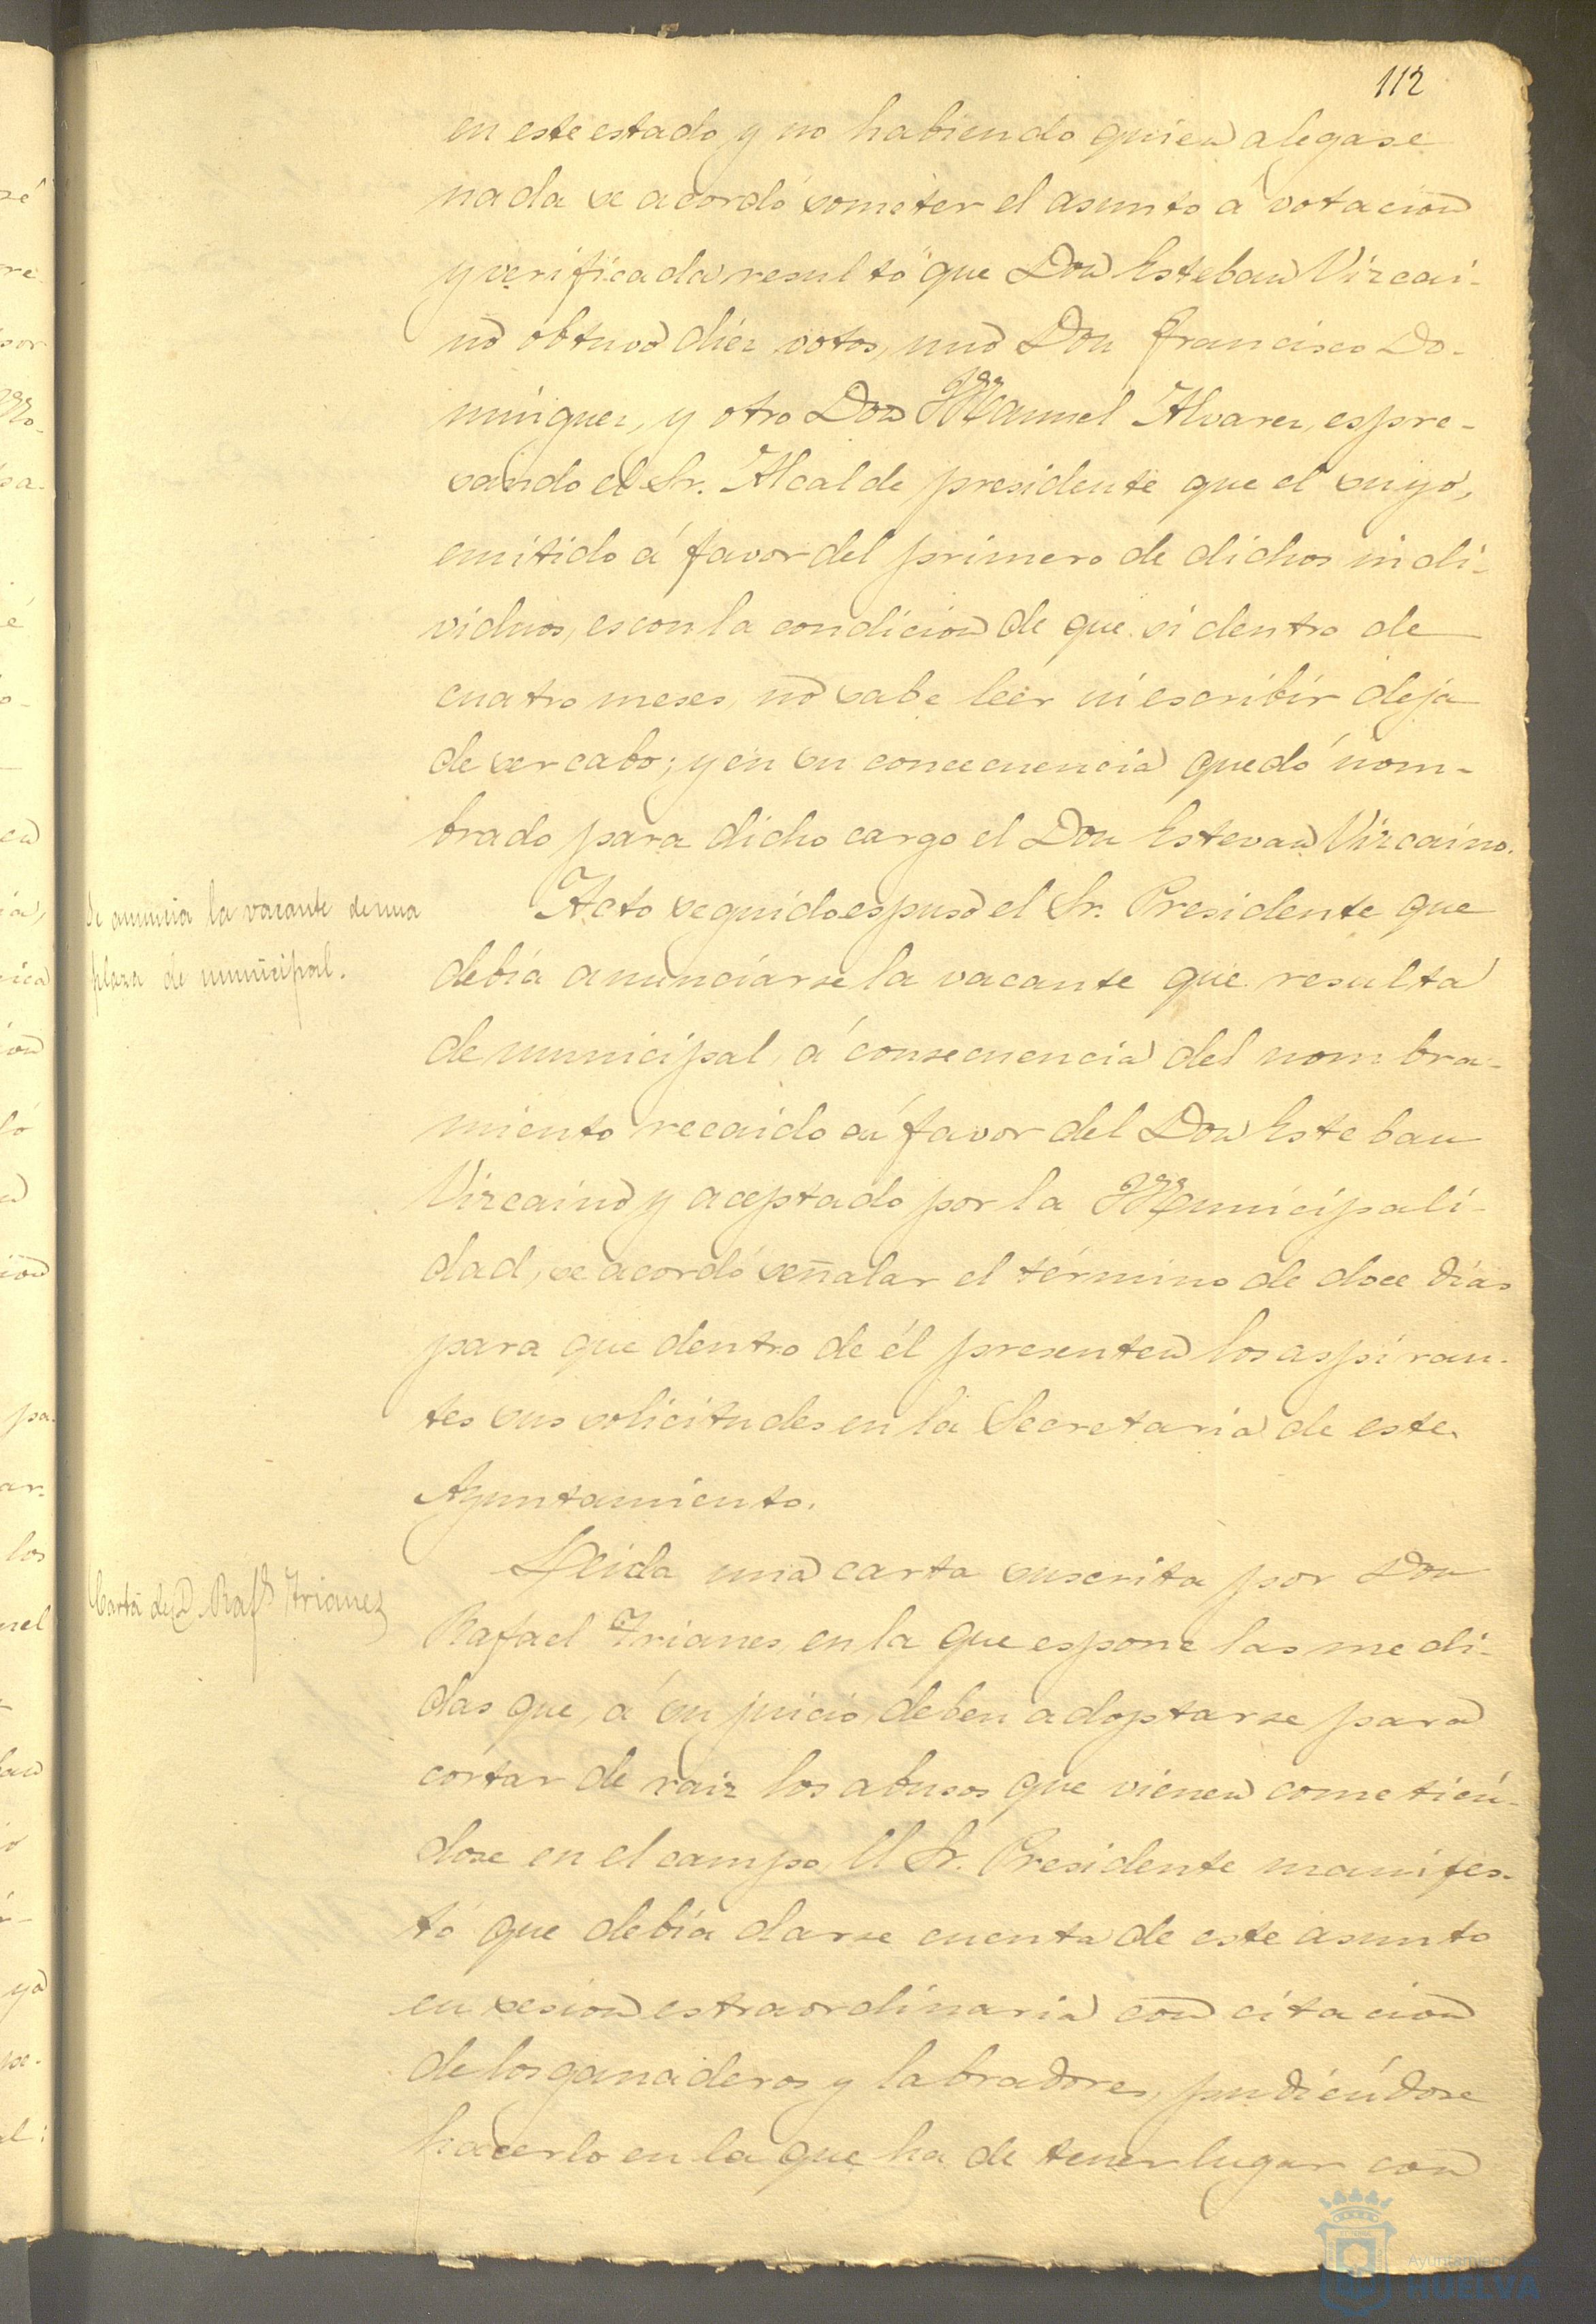 112
en este estado y no habiendo quien alegase
nada se acordó someter el asunto á votacion
y verificada resultó que Don Esteban Vizcai-
no obtuvo diez votos, uno Don Francisco Do-
minguez, y otro Don Manuel Alvarez, espre-
sando el Sr. Alcalde presidente que el suyo,
emitido á favor del primero de dichos indi-
viduos, es con la condicion de que si dentro de
cuatro meses, no sabe leer ni escribir deja
de ser cabo; y en su consecuencia quedó nom-
brado para dicho cargo el Don Estevan Vizcaino.
Se anuncia la vacante de una
plaza de municipal.
Acto seguido espuso el Sr. Presidente que
debia anunciarse la vacante que resulta
de municipal, á consecuencia del nombra-
miento recaido á favor del Don Esteban
Vizcaino y aceptado por la Municipali-
dad, se acordó señalar el término de doce dias
para que dentro de él presenten los aspiran-
tes sus solicitudes en la Secretaria de este
Ayuntamiento.
Carta de D. Rafl Trianez
Leida una carta suscrita por Don
Rafael Trianes, en la que espone las medi-
das que, á su juicio, deben adoptarse para
cortar de raiz los abusos que vienen cometién-
dose en el campo, El Sr. Presidente manifes-
tó que debia darse cuenta de este asunto
en sesion estraordinaria con citacion
de los ganaderos y labradores, pudiéndose
hacerlo en la que ha de tener lugar con
Ayuntamiento de
HUELVA